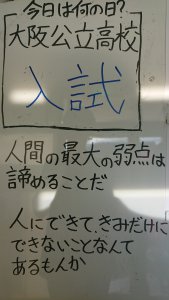 今日は何の日?
大阪公立高校
入試
人間の最大の弱点は
諦めることだ
人にできて、きみだけに
できないことなんて
あるもんか